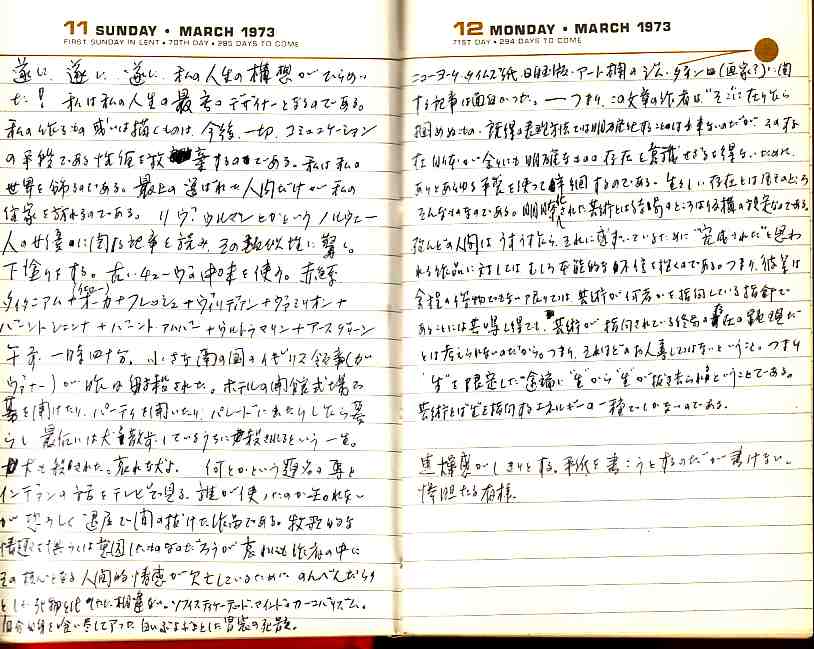 11 SUNDAY • MARCH 1973
FIRST SUNDAY IN LENT • 70TH DAY • 295 DAYS TO COME
遂に、遂に、遂に、私の人生の構想がでらめい
た! 私は私の人生の最高のデザイナーとなるのである。
私の作るもの或いは描くものは、今後、一切、コミュニケーション
の手段である性質を放棄するのである。私は私の
世界を飾るのである。最上の選ばれた人間だけが私の
住家を訪れるのである。 リヴ・ウルマンとかという ノルウェー
人の女優に関する記事を読み、その類似性に驚く。
下塗りをする。古いチューブの中味を使う。赤系
タイタニアム+オーカ+フレッシュ+ヴィリディアン+ヴァミリオン+
(イエロー)
バーントシェンナ+バーントアンバー+ウルトラマリン+アースグリーン
午前一時四十分。小さな南の国のイギリス領事(
)が昨日 殺された。ホテルの開館式で
幕を開けたり、パーティを開いたり、パレードに出たりしながら暮
らし最后には犬と散歩しているうちに殺されるという一生。
犬も殺された。哀れな犬よ。 何とかという題名の
インデアンの話をテレビで見る。誰が使ったのか知れない
が恐ろしく退屈で間の抜けた作品である。牧歌的な
情趣を 意図したものなのだろうが哀れにも作者の中に
その核心となる人間的情感が欠乏しているために のんべんだらり
とした 相違ない。ソフィスティケーテッド・マインドのカーニバリズム。
自分自身を喰い尽してアった白いぶよぶよとした胃袋の死骸。
12 MONDAY • MARCH 1973
71ST DAY • 294 DAYS TO COME
ニューヨークタイムズ紙、日曜版、アート欄の (画家?)に関
する記事は面白かった。— つまり、この文章の作者は“そこに在りながら
掴めぬもの、 表現方法では明確化することは出来ないのだが その存
在 が余りにも明確なままの存在を意識せざるを得ないために、
ありとあらゆる手段を使って するのである。生々しい存在とは 詰るところ
そんなものなのである。明瞭化された芸術とは結局のところは仮構の設定なのである。
殆んどの人間は うすうすながら、それに感づいているために“完成された”と思わ
れる作品に対しては むしろ本能的な不信を抱くのである。つまり、彼等は
余程の俗物でもない限りでは 芸術が何者かを指向している指針で
あることには共鳴し得ても、芸術が指向されている終局の存在の 現だ
とは考えられないのだから。つまり、それほどのお人善しではないということ。つまり
“生”を限定した途端に“生”から“生”が抜き去られるということである。
芸術とは“生”を指向するエネルギーの一種でしかないのである。
焦燥感がしきりとする。手紙を書こうとするのだが書けない。
惨胆たる有様。